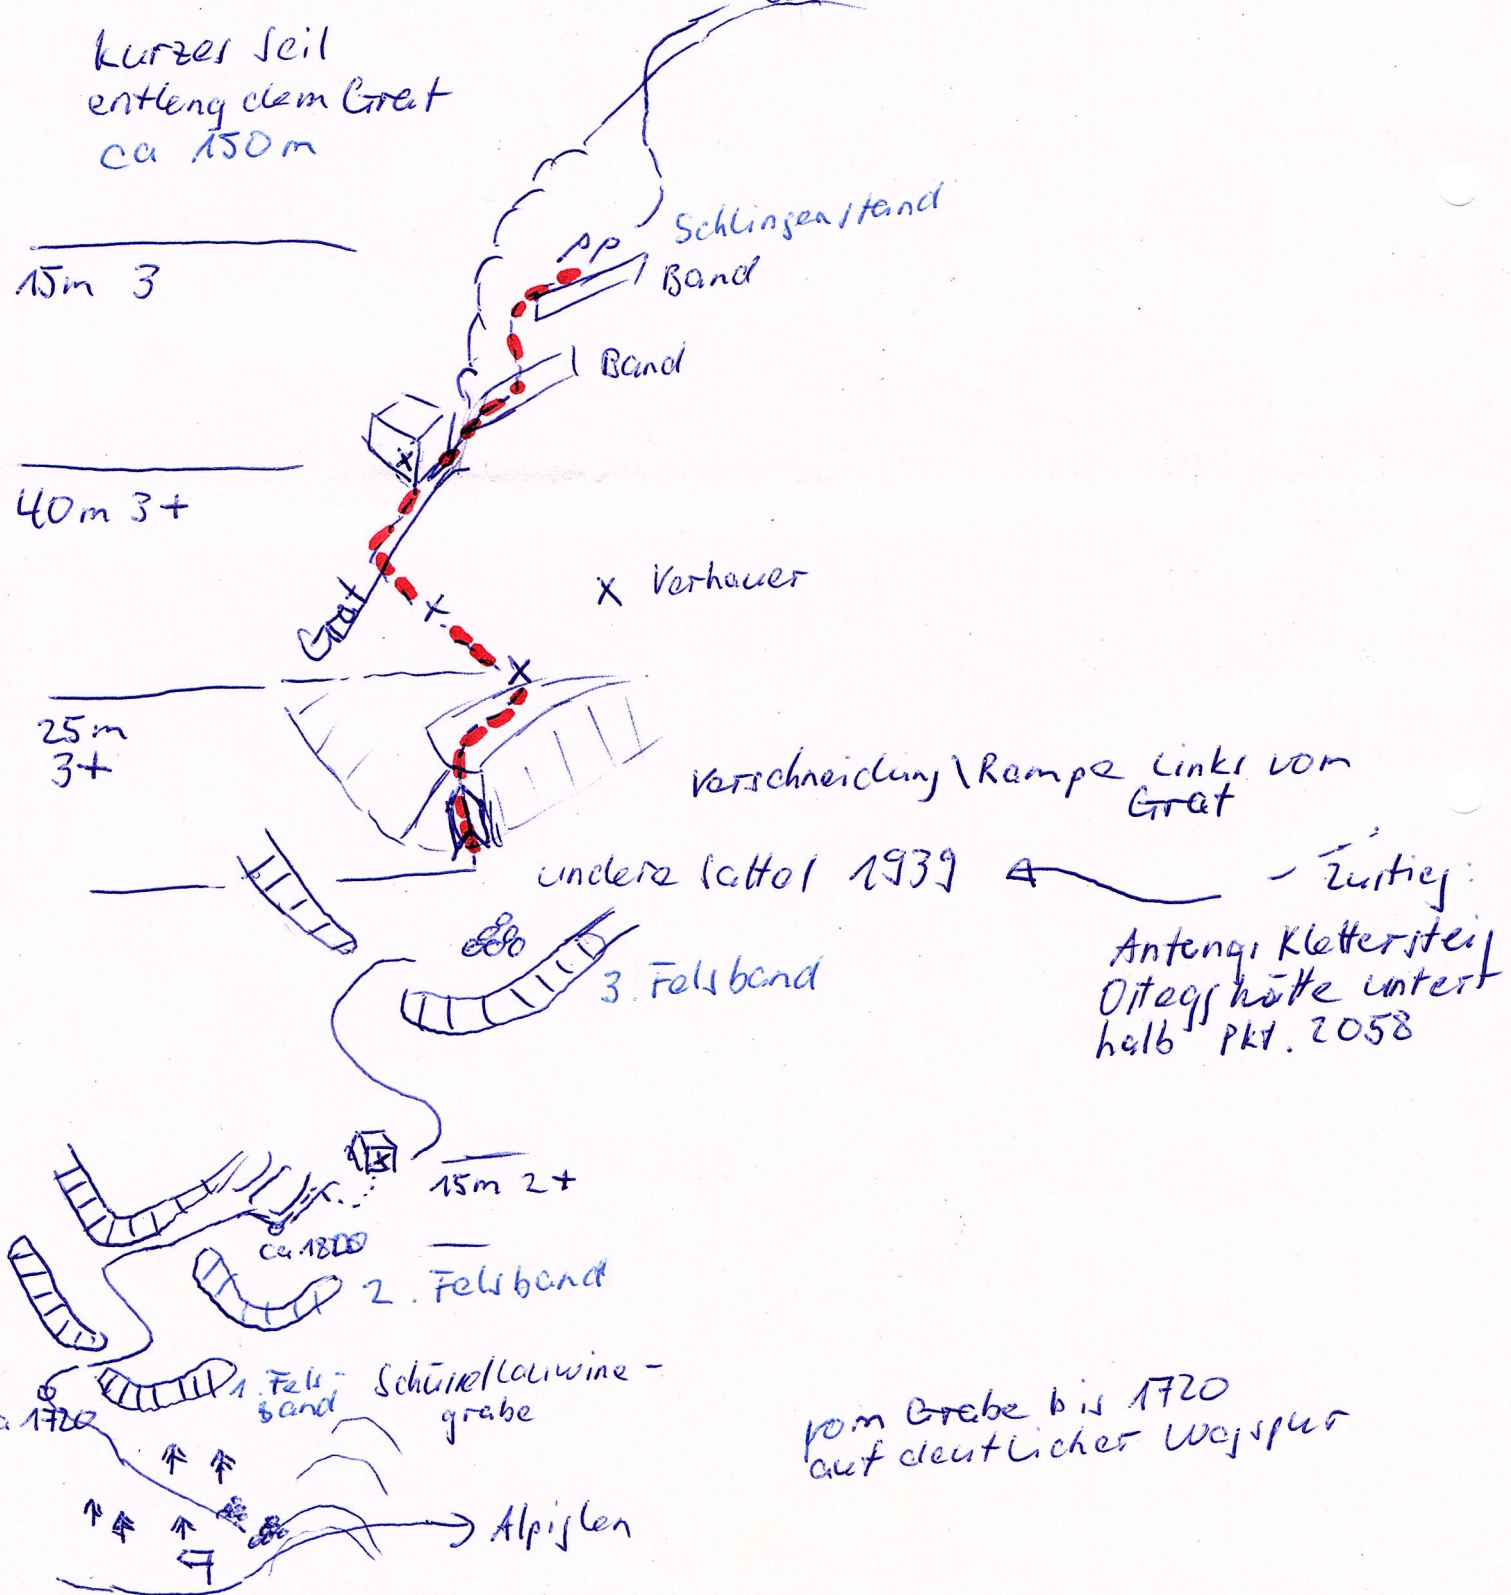 kurzes Seil
entlang dem Grat
ca 150m
Schlingenstand
PP
15m 3
Band
Band
40m 3+
X Verhauer
Grat
25m
3+
Verschneidung\Rampe links vom
Grat
undere Sattel 1939
- Zustieg:
Anfangs Klettersteig
Ostegghütte untert
halb Pkt. 2058
3. Felsband
15m 2+
ca. 1800
2. Felsband
1. Fels-
band
Schüssellauwine-
grabe
1720
vom Grabe bis 1720
auf deutlicher Wegspur
Alpiglen